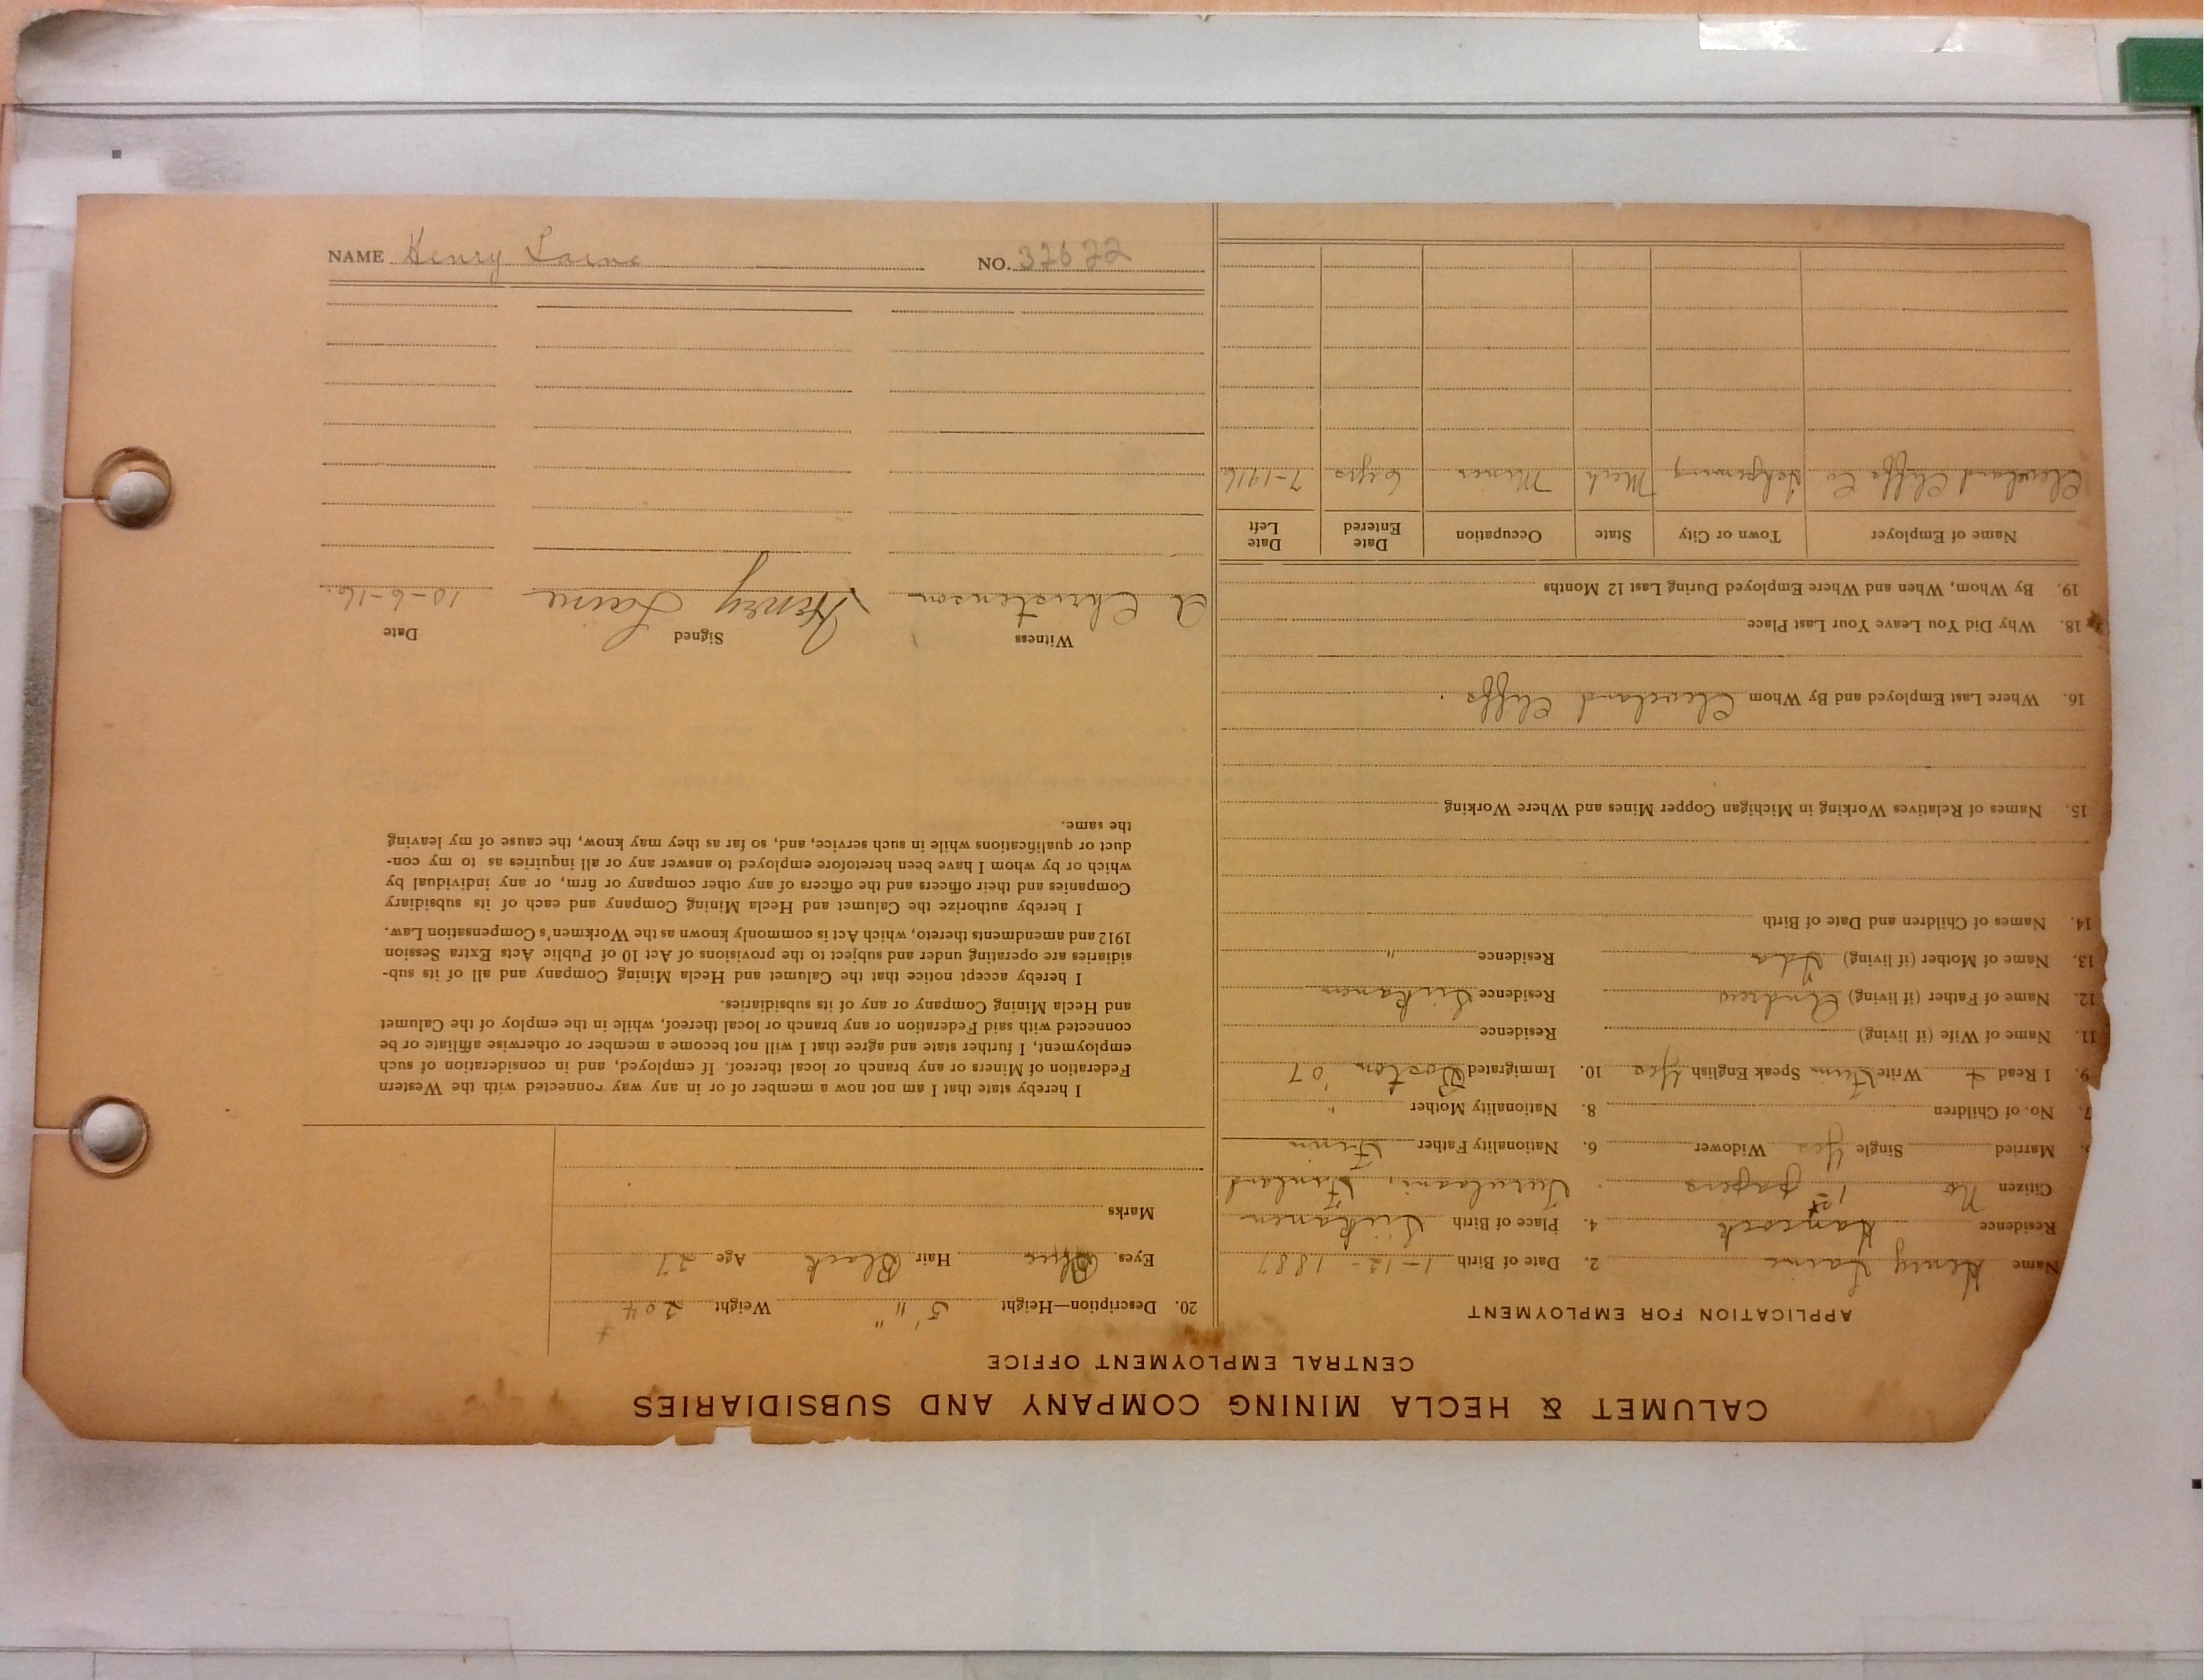 NAME Henry Laine NO. 32622
CALUMET & HECLA MINING COMPANY AND SUBSIDIARIES
CENTRAL EMPLOYMENT OFFICE
APPLICATION FOR EMPLOYMENT
Name Henry Laine 2. Date of Birth 1-12-1887
Residence Hancock 4. Place of Birth Siikanen
Citizen No 1st papers Finland
Married Single Yes Widower 6. Nationality Father Finn
7. No. of Children 8. Nationality Mother "
9. I Read + Write Finn Speak English Yes 10. Immigrated Boston '07
11. Name of Wife (if living) Residence
12. Name of Father (if living) Andrew Residence Siikanen
13. Name of Mother (if living) Ida Residence "
14. Names of Children and Date of Birth
15. Names of Relatives Working in Michigan Copper Mines and Where Working
16. Where Last Employed and By Whom Cleveland Cliffs.
18. Why Did You Leave Your Last Place
19. By Whom, When and Where Employed During Last 12 Months
Name of Employer Town or City State Occupation Date Entered Date Left
Cleveland Cliffs Co Ishpeming Mich Miner 6 yrs 7-1916
20. Description—Height 5' 11" Weight 204 +
Eyes Blue Hair Black Age 27
Marks
I hereby state that I am not now a member of or in any way connected with the Western
Federation of Miners or any branch or local thereof. If employed, and in consideration of such
employment, I further state and agree that I will not become a member or otherwise affiliate or be
connected with said Federation or any branch or local thereof, while in the employ of the Calumet
and Hecla Mining Company or any of its subsidiaries.
I hereby accept notice that the Calumet and Hecla Mining Company and all of its sub-
sidiaries are operating under and subject to the provisions of Act 10 of Public Acts Extra Session
1912 and amendments thereto, which Act is commonly known as the Workmen's Compensation Law.
I hereby authorize the Calumet and Hecla Mining Company and each of its subsidiary
Companies and their officers and the officers of any other company or firm, or any individual by
which or by whom I have been heretofore employed to answer any or all inquiries as to my con-
duct or qualifications while in such service, and, so far as they may know, the cause of my leaving
the same.
Witness Signed Date
A Christenson Henry Laine 10-6-16.